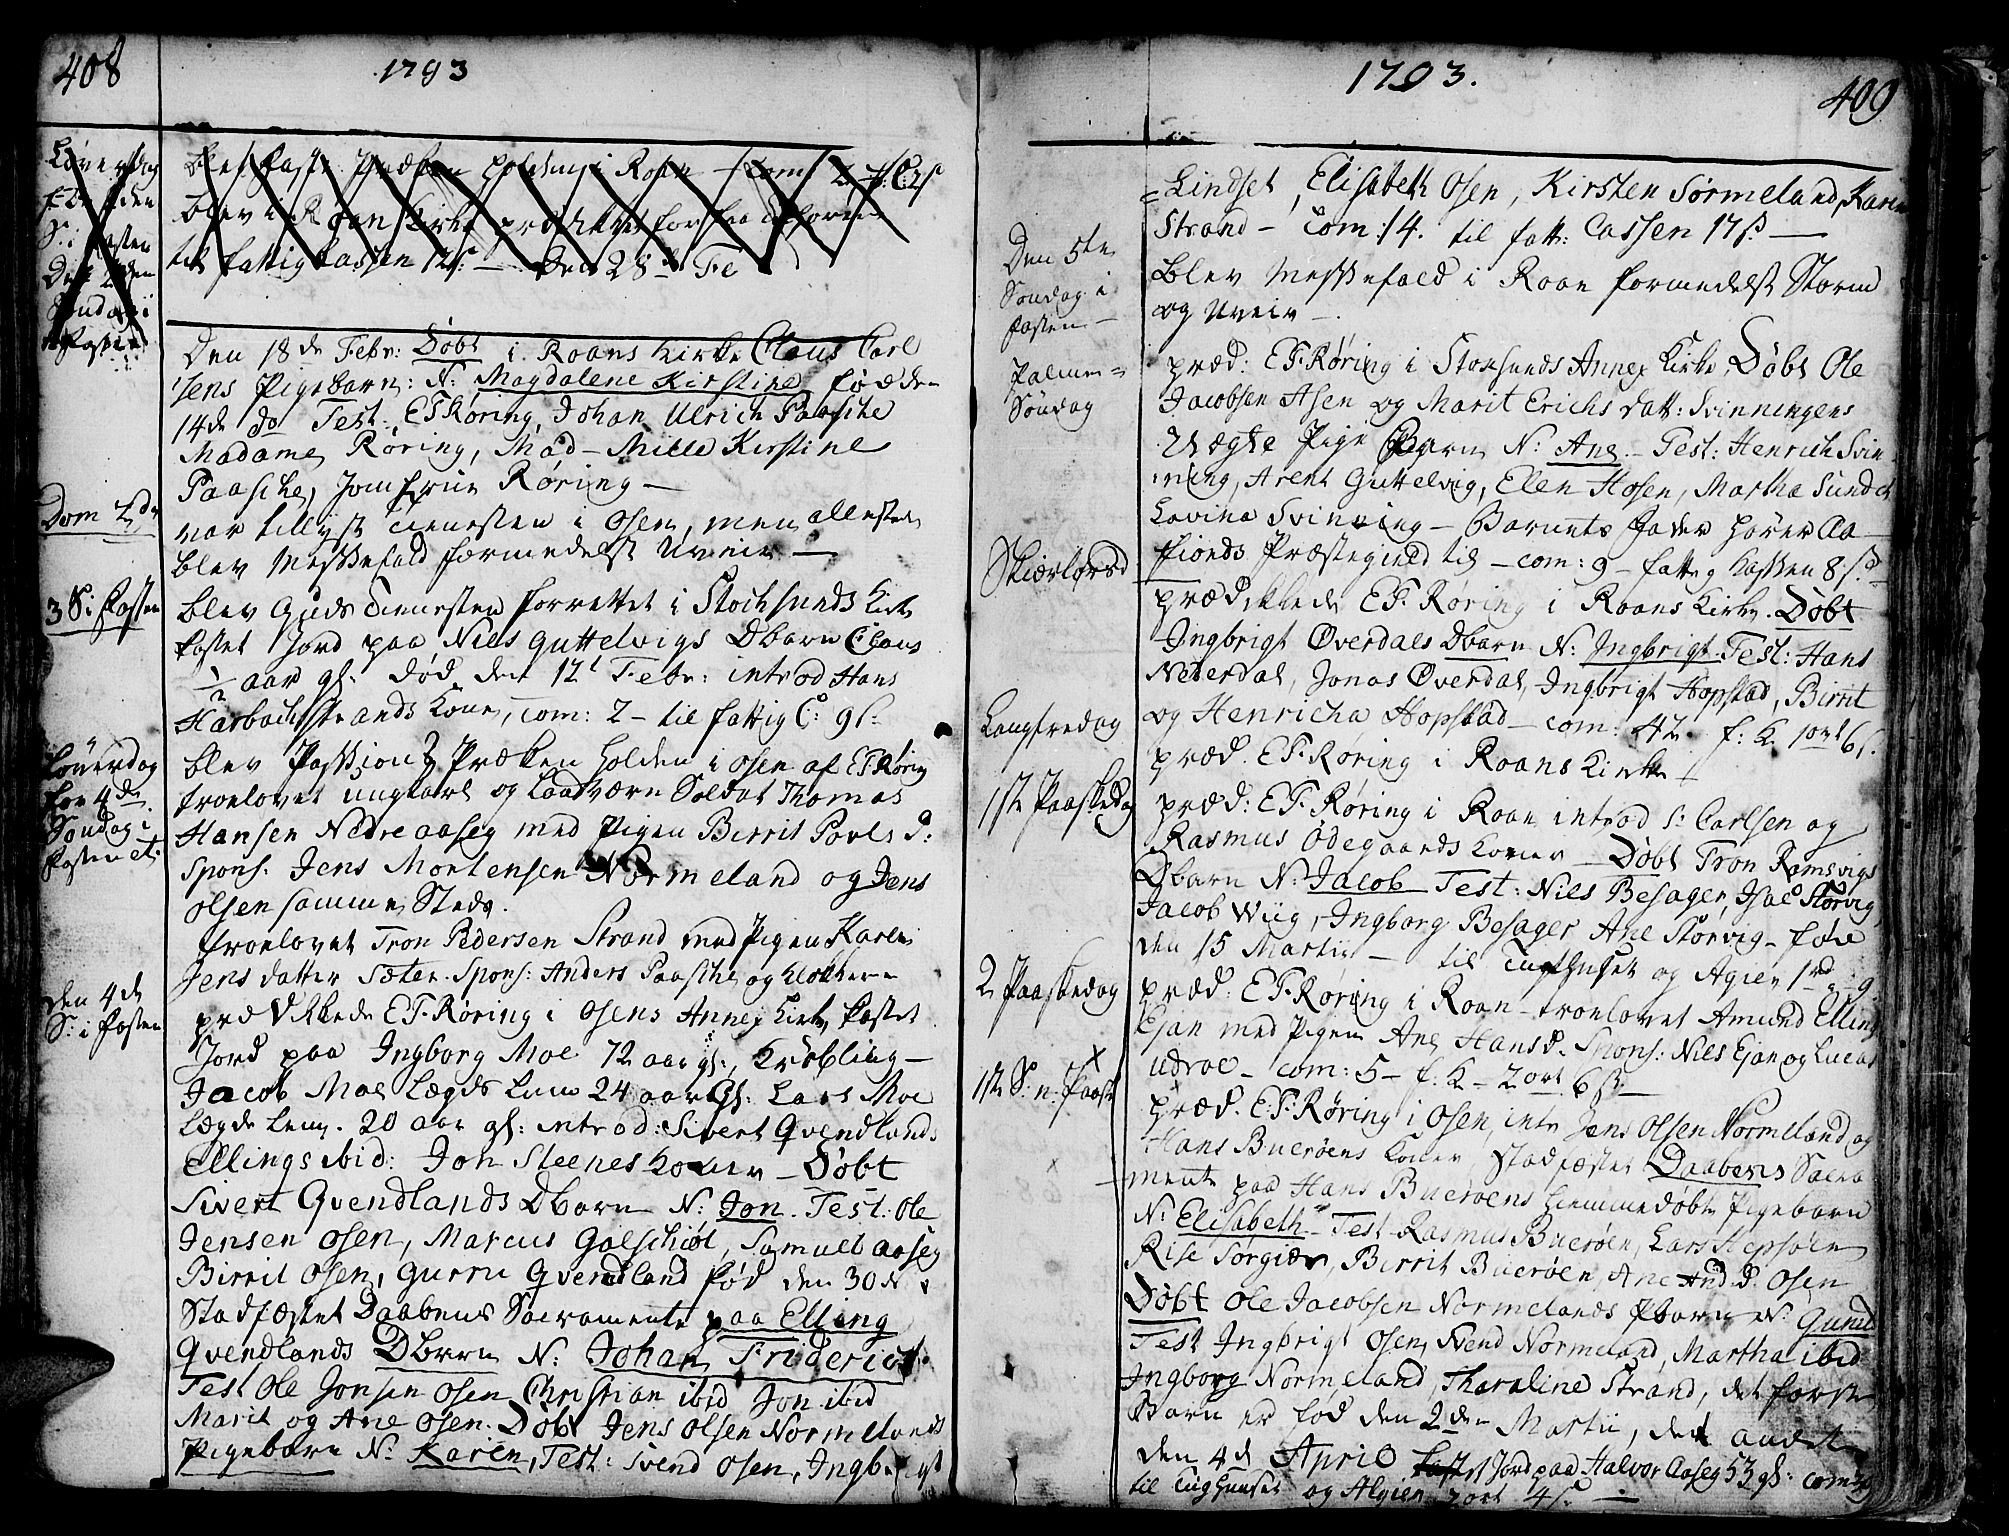 408
1793
Løverdag
før 2den
S: i fasten
Dett 2den
Søndag i
Fasten
blef Faste Prædken holden i Roan - Com
blev i Roan Kirke prædikket
til fattig Cassen 12 s: - Den 28de Fe
Den 18de Febr: Døbt i Roans Kirke Claus Carl
Jens Pigebarn: N: Magdalene Kirstine, fød den
14de do Test: E F Røring, Johan Ulrich Paasche
Madame Røring, Mad - Mille Kirstine
Paasche, Jomfrue Røring -
Dom 2dn
var tillyst tienesten i Osen, men
blev Messefald formedelst Uveir -
3 S: i Fasten
blev Guds tienesten forrettet i Stochsunds Kirke
kastet Jord paa Niels Guttelvigs Dbarn Claus
1/2 aar gl. død den 12t Febr: introd Hans
Harbachstrands Kone, com: 2 - til fattig C: 9 s.
Løverdag
for 4de
Søndag i
Fasten
blev Passions Præken holden i Osen af E F Røring
troelovet ungkarl og Landværn Soldat Thomas
Hansen Nedre aaseg med Pigen Birrit Povels D:
Spons: Jens Mortensen Normeland og Jens
Olsen samme Steds.
troelovet Tron Pedersen Strand med Pigen Karen
Jens datter Sæter. Spons: Anders Paasche og Klokkeren
Den 4de
S: i Fasten
prædikkede E F. Røring i Osens Annex Kirke, kastet
Jord paa Ingborg Moe 72 aar gl:, Krøbling -
Jacob Moe Lægds Lem 24 aar Gl: Lars Moe
Lægde Lem. 20 aar gl: introd: Sivert Qvendlands
Ellings ibid: Jon Steenes Koner - Døbt
Sivert Qvendlands Dbarn N: Jon. Test: Ole
Jensen Osen, Marcus Golschiøt, Samuel Aaseg
Birrit Osen, Gurru Qvendland fød den 30
Stadfæstet Daabens Sacramente paa Elling
Qvendlands Dbarn N: Johan Frideric
Test Ole Jensen Osen Christian ibid Jon ibid
Marit og Ane Osen. Døbt Jens Olsen Normelands
Pigebarn N: Karen, Test: Svend Osen, Ingbrigt
1793.
409
Lindset, Elisabeth Osen, Kirsten Sørmeland, Karen
Strand - Com: 14. til fatt: Cassen 17 s. -
Den 5te
Søndag i
fasten -
Blev Messefald i Roan formedelst Storm
og Uveir -
Palme=
Søndag
præd: E F. Røring i Stoksunds Annex Kirke, Døbt Ole
Jacobsen Asen og Marit Erichs datt: Svinningens
Uægte Pige Barn N: Ane - Test: Henrich Svin
ning, Arent Guttelvig, Ellen Hosen, Martha Sundet
Lavina Svinning - Barnets Fader hører Aa-
fiords Præstegield til - com: 9 - fattig Kassen 8 s.
Skiærtorsd
prædikkede E F. Røring i Roans Kirke. Døbt
Ingbrigt Øverdals Dbarn N: Ingbrigt Test: Hans
Nederdal, Jonas Øverdal, Ingbrigt Hopstad, Birrit
og Henricha Hopstad - com: 42 f: K. 1 ort 6 s.
Langfredag
præd. E F. Røring i Roans Kirke
1ste Paaskedag
præd: E F. Røring i Roan introd S: Carlsen og
Rasmus Ødegaards Koner - Døbt Tron Ramsvigs
Dbarn N: Jacob Test: Nils Besager, Isac Storvig
Jacob Wiig, Ingborg Besager Ane Storvig - føde
den 15 Martii - til Tugthuset og Agier 1 rd - 9
2 Paaskedag
præd: E F. Røring i Roan - troelovet Amund Ellings
Ejan med Pigen Ane Hans D. Spons: Nils Ejan og Lucas
Udroe - com: 5 - f: K - 2 ort 6 s -
1ste S: n: Paaske
præd. E. F: Røring i Osen, intr Jens Olsen Normeland og
Hans Buerøens Koner, Stadfæstet Daabens Sacra
mente paa Hans Buerøens hiemmedøbte Pigebarn
N: Elisabeth - Test Rasmus Buerøen, Lars Hepsøen
Rise Sørgiær, Birrit Buerøen, Ane And: D. Osen
Døbt Ole Jacobsen Normelands Pbarn N: Gunil
Test Ingbrigt Osen, Svend Normeland, Martha ibid
Ingborg Normeland, Tharaline Strand, det første
Barn er fød den 2den Martii, det andet
den 4de April kastet Jord paa Halvor Aaseg 53 gl: com
til Tugthuset og Algier 2 ort 4 s. -